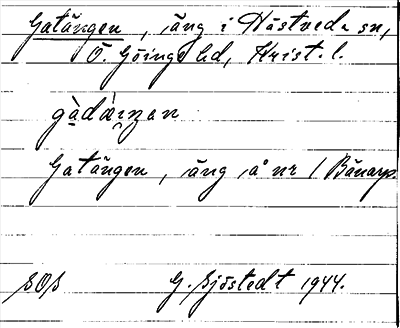 Gatängen, äng i Hästveda sn,
Ö. Göinge hd, Krist. l.
gàdàŋan
Gatängen, äng å nr 1 Bänarp
SOS G. Sjöstedt 1944.